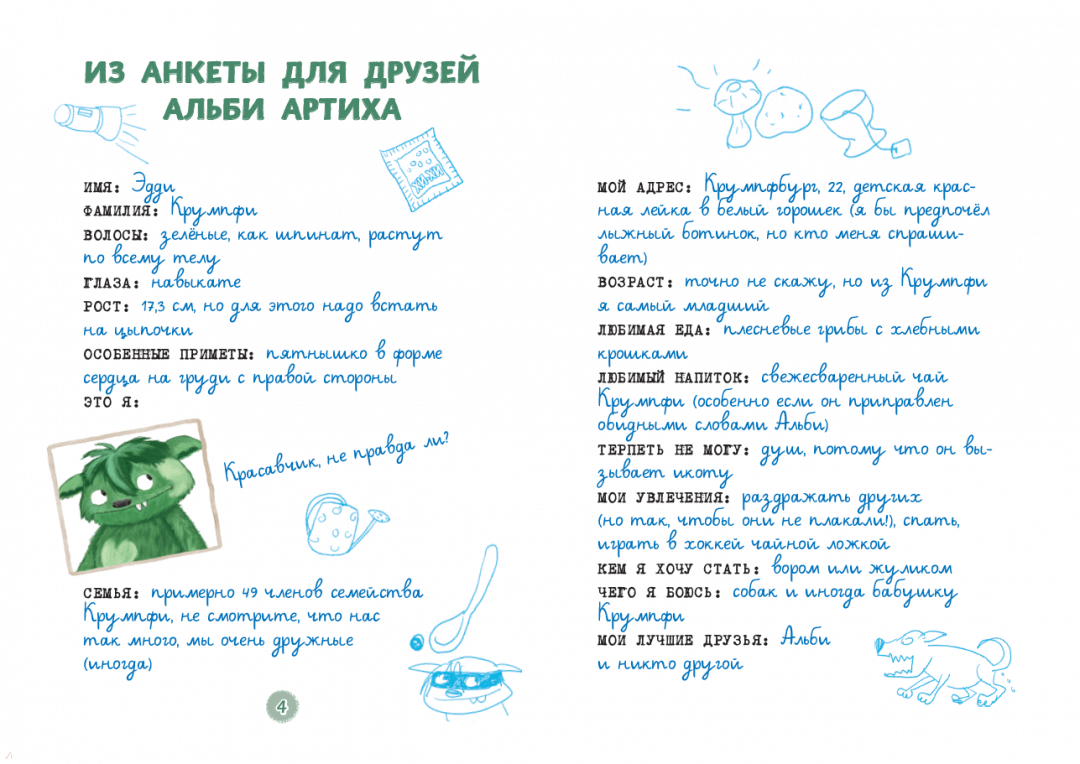 ИЗ АНКЕТЫ ДЛЯ ДРУЗЕЙ
АЛЬБИ АРТИХА
ХИ-ХИ
ИМЯ: Эдди
ФАМИЛИЯ: Крумпфи
ВОЛОСЫ: зелёные, как шпинат, растут
по всему телу
ГЛАЗА: навыкате
РОСТ: 17,3 см, но для этого надо встать
на цыпочки
ОСОБЕННЫЕ ПРИМЕТЫ: пятнышко в форме
сердца на груди с правой стороны
ЭТО Я:
Красавчик, не правда ли?
СЕМЬЯ: примерно 49 членов семейства
Крумпфи, не смотрите, что нас
так много, мы очень дружные
(иногда)
4
МОЙ АДРЕС: Крумпфбург, 22, детская крас-
ная лейка в белый горошек (я бы предпочёл
лыжный ботинок, но кто меня спраши-
вает)
ВОЗРАСТ: точно не скажу, но из Крумпфи
я самый младший
ЛЮБИМАЯ ЕДА: плесневые грибы с хлебными
крошками
ЛЮБИМЫЙ НАПИТОК: свежесваренный чай
Крумпфи (особенно если он приправлен
обидными словами Альби)
ТЕРПЕТЬ НЕ МОГУ: душ, потому что он вы-
зывает икоту
МОИ УВЛЕЧЕНИЯ: раздражать других
(но так, чтобы они не плакали!), спать,
играть в хоккей чайной ложкой
КЕМ Я ХОЧУ СТАТЬ: вором или жуликом
ЧЕГО Я БОЮСЬ: собак и иногда бабушку
Крумпфи
МОИ ЛУЧШИЕ ДРУЗЬЯ: Альби
и никто другой